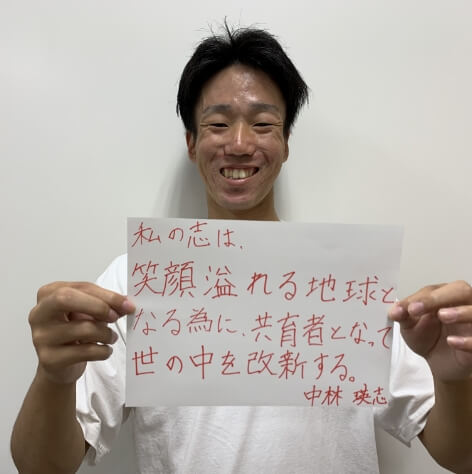 私の志は、
笑顔溢れる地球と
なる為に、共育者となって
世の中を改新する。
中林 瑛志